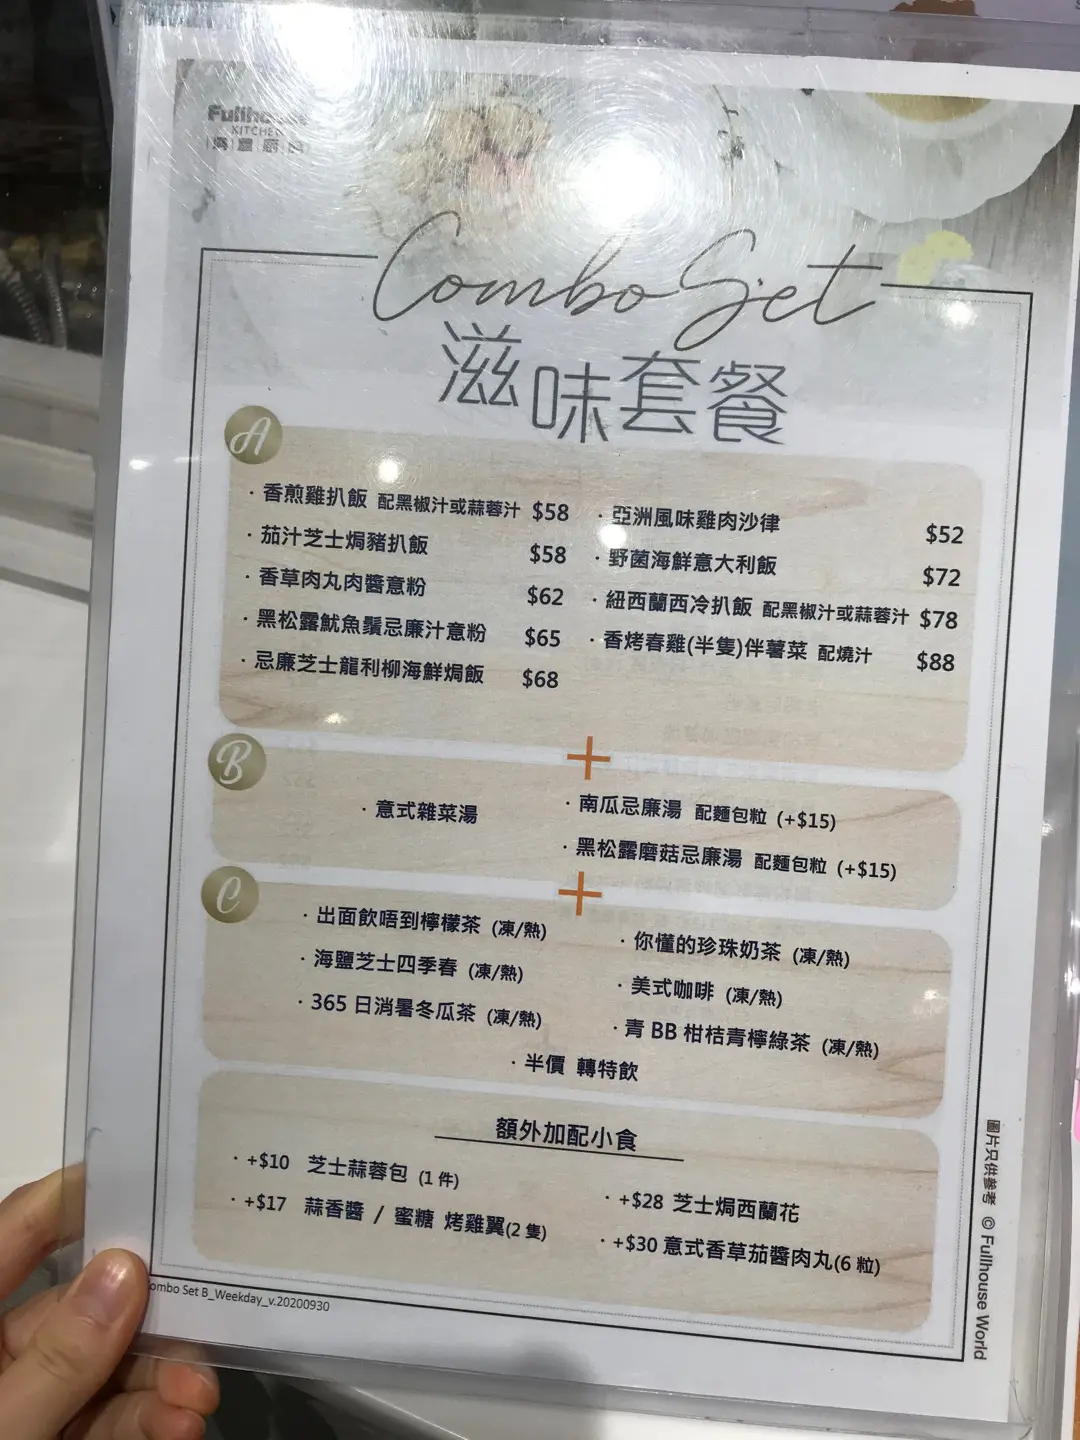 Fullhouse
KITCHEN
Combo Set
滋味套餐
A
· 香煎雞扒飯 配黑椒汁或蒜蓉汁 $58
· 茄汁芝士焗豬扒飯 $58
· 香草肉丸肉醬意粉 $62
· 黑松露魷魚鬚忌廉汁意粉 $65
· 忌廉芝士龍利柳海鮮焗飯 $68
· 亞洲風味雞肉沙律 $52
· 野菌海鮮意大利飯 $72
· 紐西蘭西冷扒飯 配黑椒汁或蒜蓉汁 $78
· 香烤春雞(半隻)伴薯菜 配燒汁 $88
+
B
· 意式雜菜湯
· 南瓜忌廉湯 配麵包粒 (+$15)
· 黑松露磨菇忌廉湯 配麵包粒 (+$15)
+
C
· 出面飲唔到檸檬茶 (凍/熱)
· 海鹽芝士四季春 (凍/熱)
· 365 日消暑冬瓜茶 (凍/熱)
· 你懂的珍珠奶茶 (凍/熱)
· 美式咖啡 (凍/熱)
· 青 BB 柑桔青檸綠茶 (凍/熱)
· 半價 轉特飲
額外加配小食
· +$10 芝士蒜蓉包 (1 件)
· +$17 蒜香醬 / 蜜糖 烤雞翼(2 隻)
· +$28 芝士焗西蘭花
· +$30 意式香草茄醬肉丸(6 粒)
ombo Set B_Weekday_v.20200930
圖片只供參考 © Fullhouse World